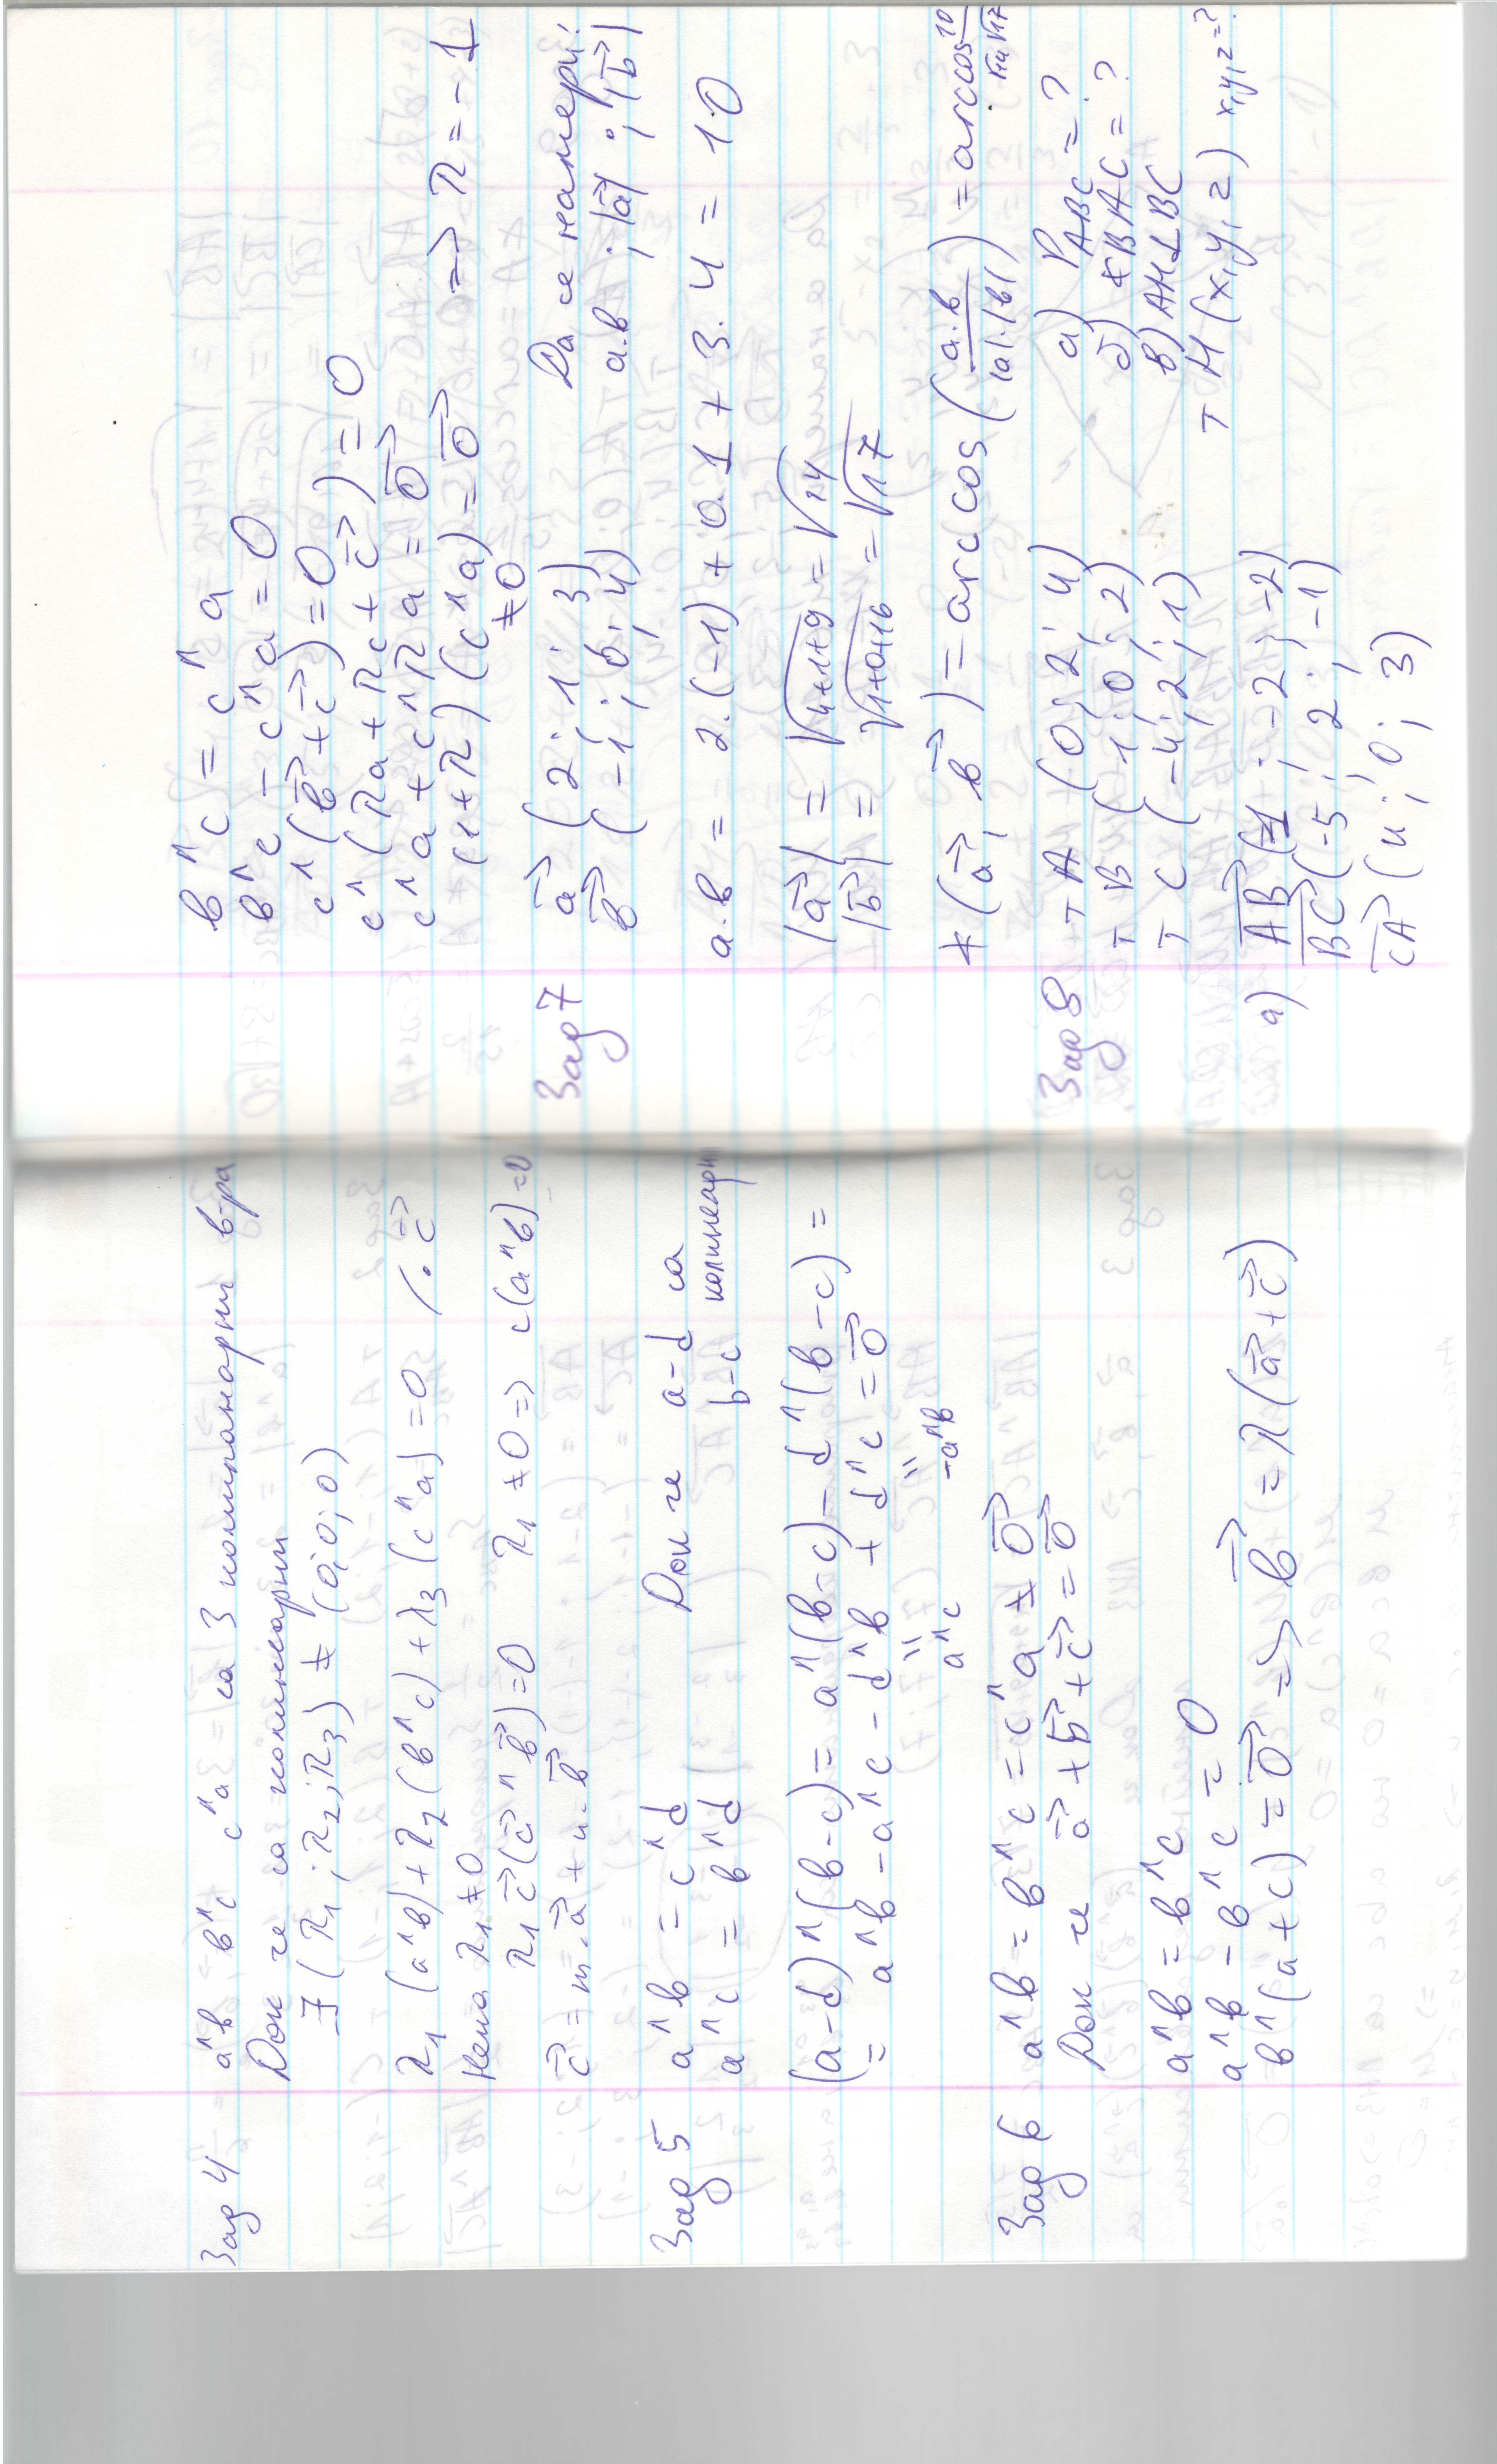 Зад 4 a^b b^c c^a са 3 компланарни в-ра
Док че са колинеарни
∃ (λ1; λ2; λ3) ≠ (0; 0; 0)
λ1 (a^b) + λ2 (b^c) + λ3 (c^a) = 0 /. c⃗
Нека λ1 ≠ 0
λ1 c⃗ (a⃗ ^ b⃗) = 0 λ1 ≠ 0 => c(a^b) = 0
c⃗ = m.a⃗ + n.b⃗
Зад 5 a^b = c^d Док че a-d са
a^c = b^d b-c колинеарн
(a-d)^(b-c) = a^(b-c) - d^(b-c) =
= a^b - a^c - d^b + d^c = 0⃗
a^c -a^b
Зад 6 a^b = b^c = c^a ≠ 0⃗
Док че a⃗ + b⃗ + c⃗ = 0⃗
a^b = b^c
a^b - b^c = 0
b^(a+c) = 0⃗ => b⃗ = λ(a⃗ + c⃗)
b^c = c^a
b^c - c^a = 0
c^(b⃗ + c⃗) = 0
c^(λa + λc + c⃗) = 0
c^a + c^λa = 0⃗
(1+λ)(c^a) = 0⃗ => λ = -1
≠0
Зад 7 a⃗ (2; 1; 3) Да се намери:
b⃗ (-1; 0; 4) a.b; |a⃗|; |b⃗|
a.b = 2.(-1) + 0.1 + 3.4 = 10
|a⃗| = √4+1+9 = √14
|b⃗| = √1+0+16 = √17
∢(a⃗, b⃗) = arccos (a.b / |a|.|b|) = arccos 10 / √14 √17
Зад 8 т A (0; 2; 4) а) P ABC = ?
т B (1; 0; 2) б) ∢BAC = ?
т C (-4; 2; 1) в) AH⊥BC
т H (x, y, z) x,y,z=?
а) AB⃗ (1; -2; -2)
BC⃗ (-5; 2; -1)
CA⃗ (4; 0; 3)